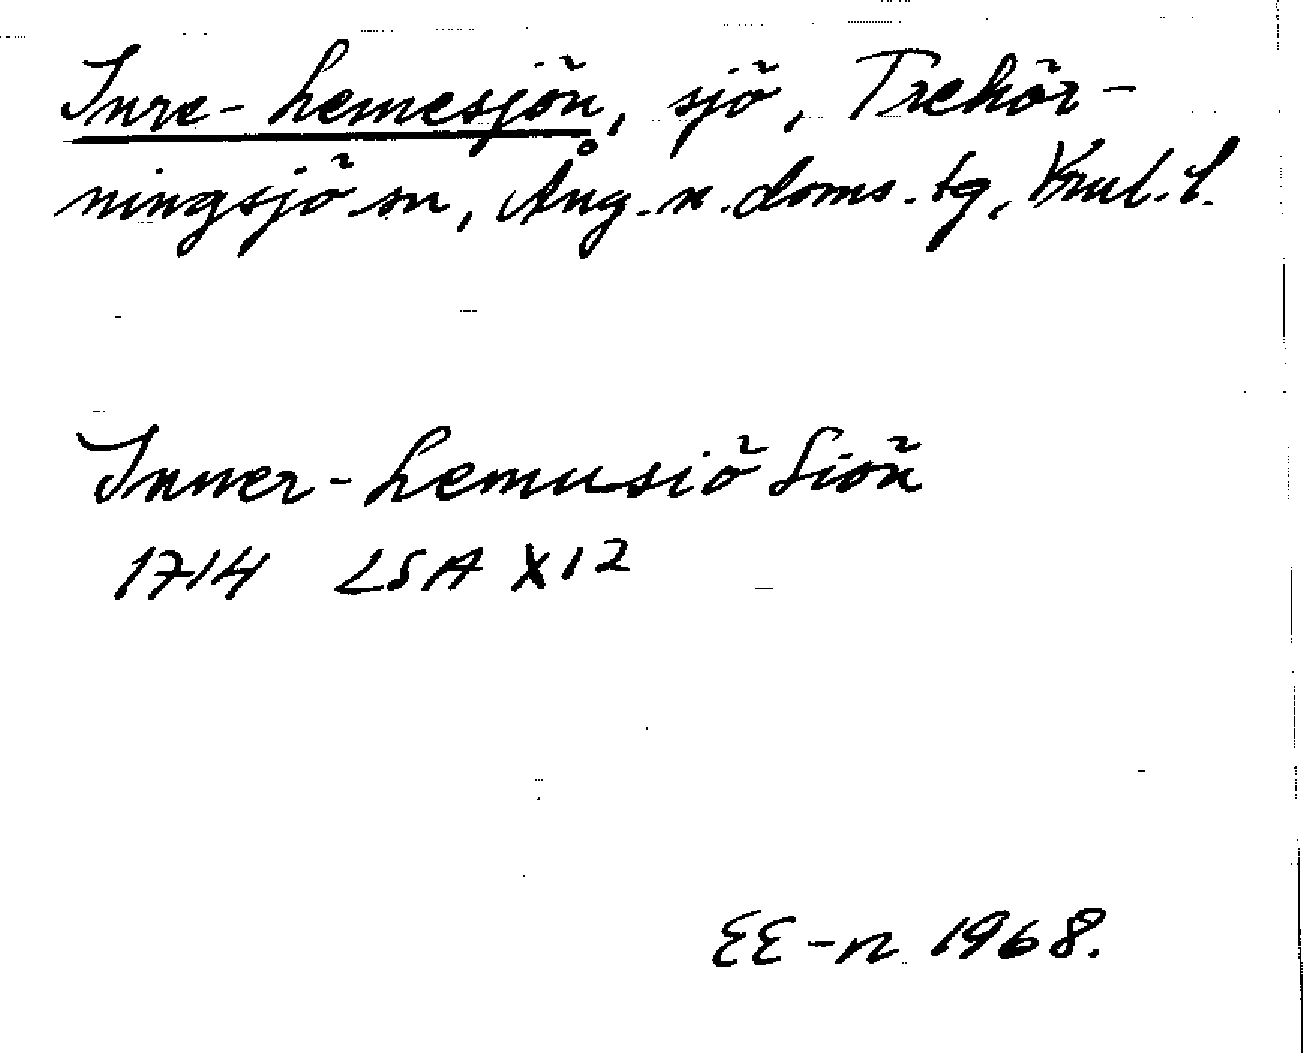 Inre-Lemesjön, sjö, Trehör-
ningsjö sn, Ång. n. doms. tg, Vnl. l.
Inner-Lemusiö Siön
1714 LSA X12
EE-n 1968.